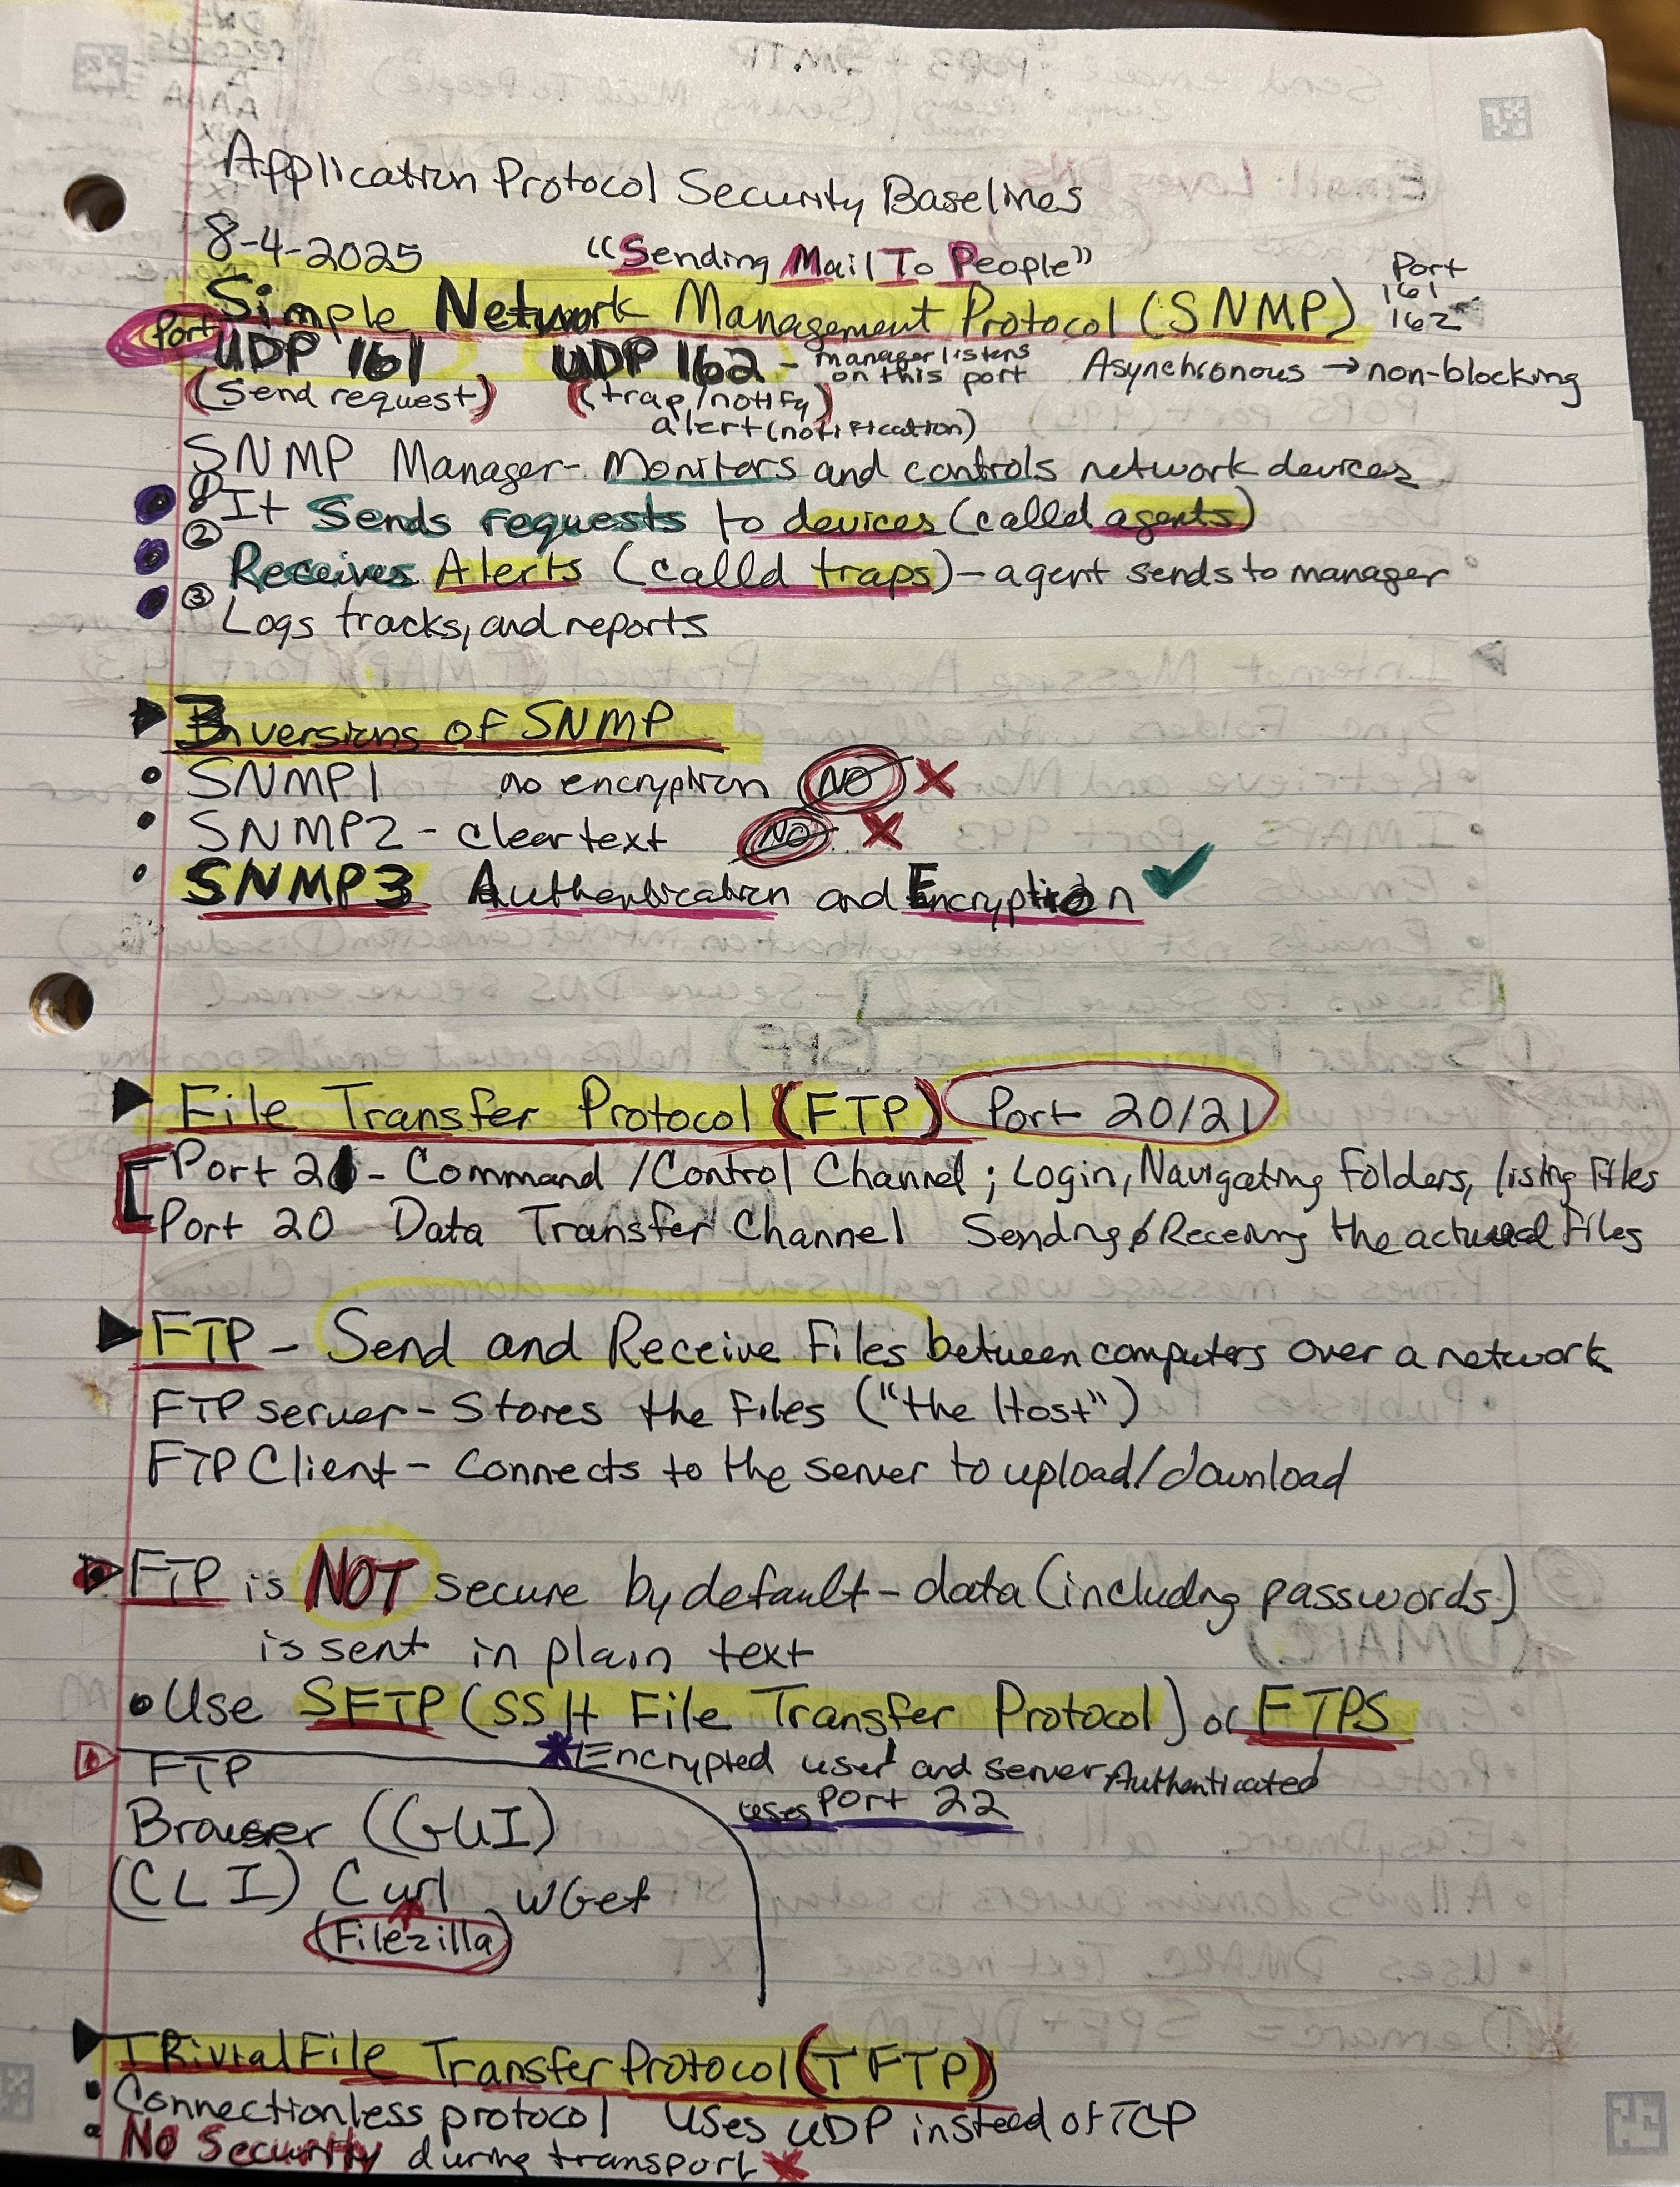 Application Protocol Security Baselines
8-4-2025 "Sending Mail To People"
Simple Network Management Protocol (SNMP) Port 161 162
Port UDP 161 UDP 162 - manager listens on this port Asynchronous → non-blocking
(Send request) (trap/notify)
alert (notification)
SNMP Manager- Monitors and controls network devices
① It Sends requests to devices (calld agents)
② Receives Alerts (calld traps) - agent sends to manager
③ Logs tracks, and reports
3 versions of SNMP
• SNMP1 no encryption NO X
• SNMP2 - clear text NO X
• SNMP3 Authentication and Encryption ✓
File Transfer Protocol (FTP) Port 20/21
Port 21 - Command / Control Channel ; Login, Navigating Folders, listing Files
Port 20 Data Transfer Channel Sending / Receiving the actual Files
FTP - Send and Receive Files between computers over a network
FTP server - Stores the Files ("the Host")
FTP Client - Connects to the server to upload/download
FTP is NOT secure by default - data (including passwords)
is sent in plain text
• Use SFTP (SSH File Transfer Protocol) or FTPS
* Encrypted user and server Authenticated
uses Port 22
FTP
Browser (GUI)
(CLI) Curl, WGet
(Filezilla)
TRivial File Transfer Protocol (TFTP)
• Connectionless protocol uses UDP instead of TCP
• No Security during transport X